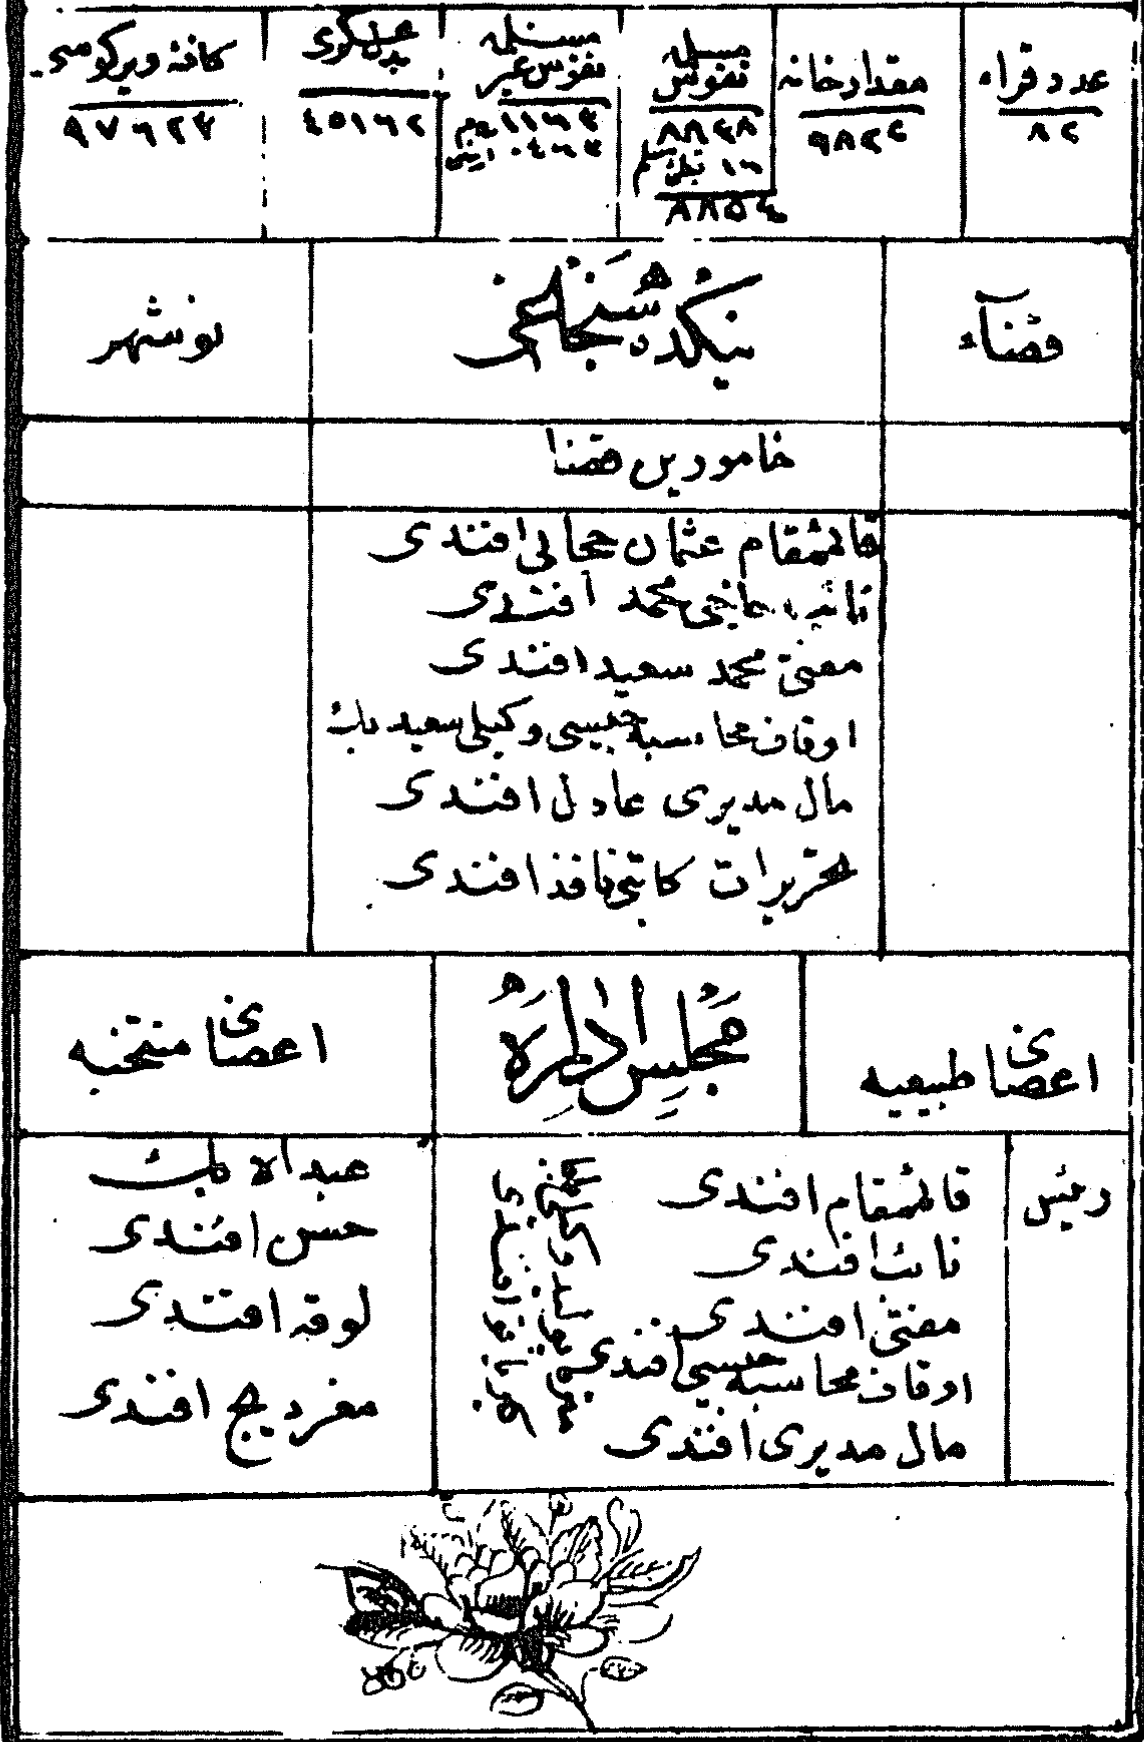 عدد قراء
٨٢
مقدار خانه
٩٨٢٢
مسلمه نفوس
٨٨٣٨
١٦
٨٨٥٤
غير مسلمه نفوس
١١٦٣ روم
٠٤٦٣ ارمنى
بدل عسكرى
٤٥١٦٢
كافهٔ ويركوسى
٩٧٦٢٣
قضاء
نيكده سنجاغى
نوشهر
مأمورين قضا
قائمقام عثمان جمالى افندى
نائب حاجى محمد افندى
مفتى محمد سعيد افندى
اوقاف محاسبه جيسى وكيلى سعيد بك
مال مديرى عادل افندى
تحريرات كاتبى نافذ افندى
اعضاى طبيعيه
مجلس اداره
اعضاى منتخبه
رئيس
قائمقام افندى
نائب افندى
مفتى افندى
اوقاف محاسبه جيسى افندى
مال مديرى افندى
عبدالله بك
حسن افندى
لوقه افندى
مغرديج افندى